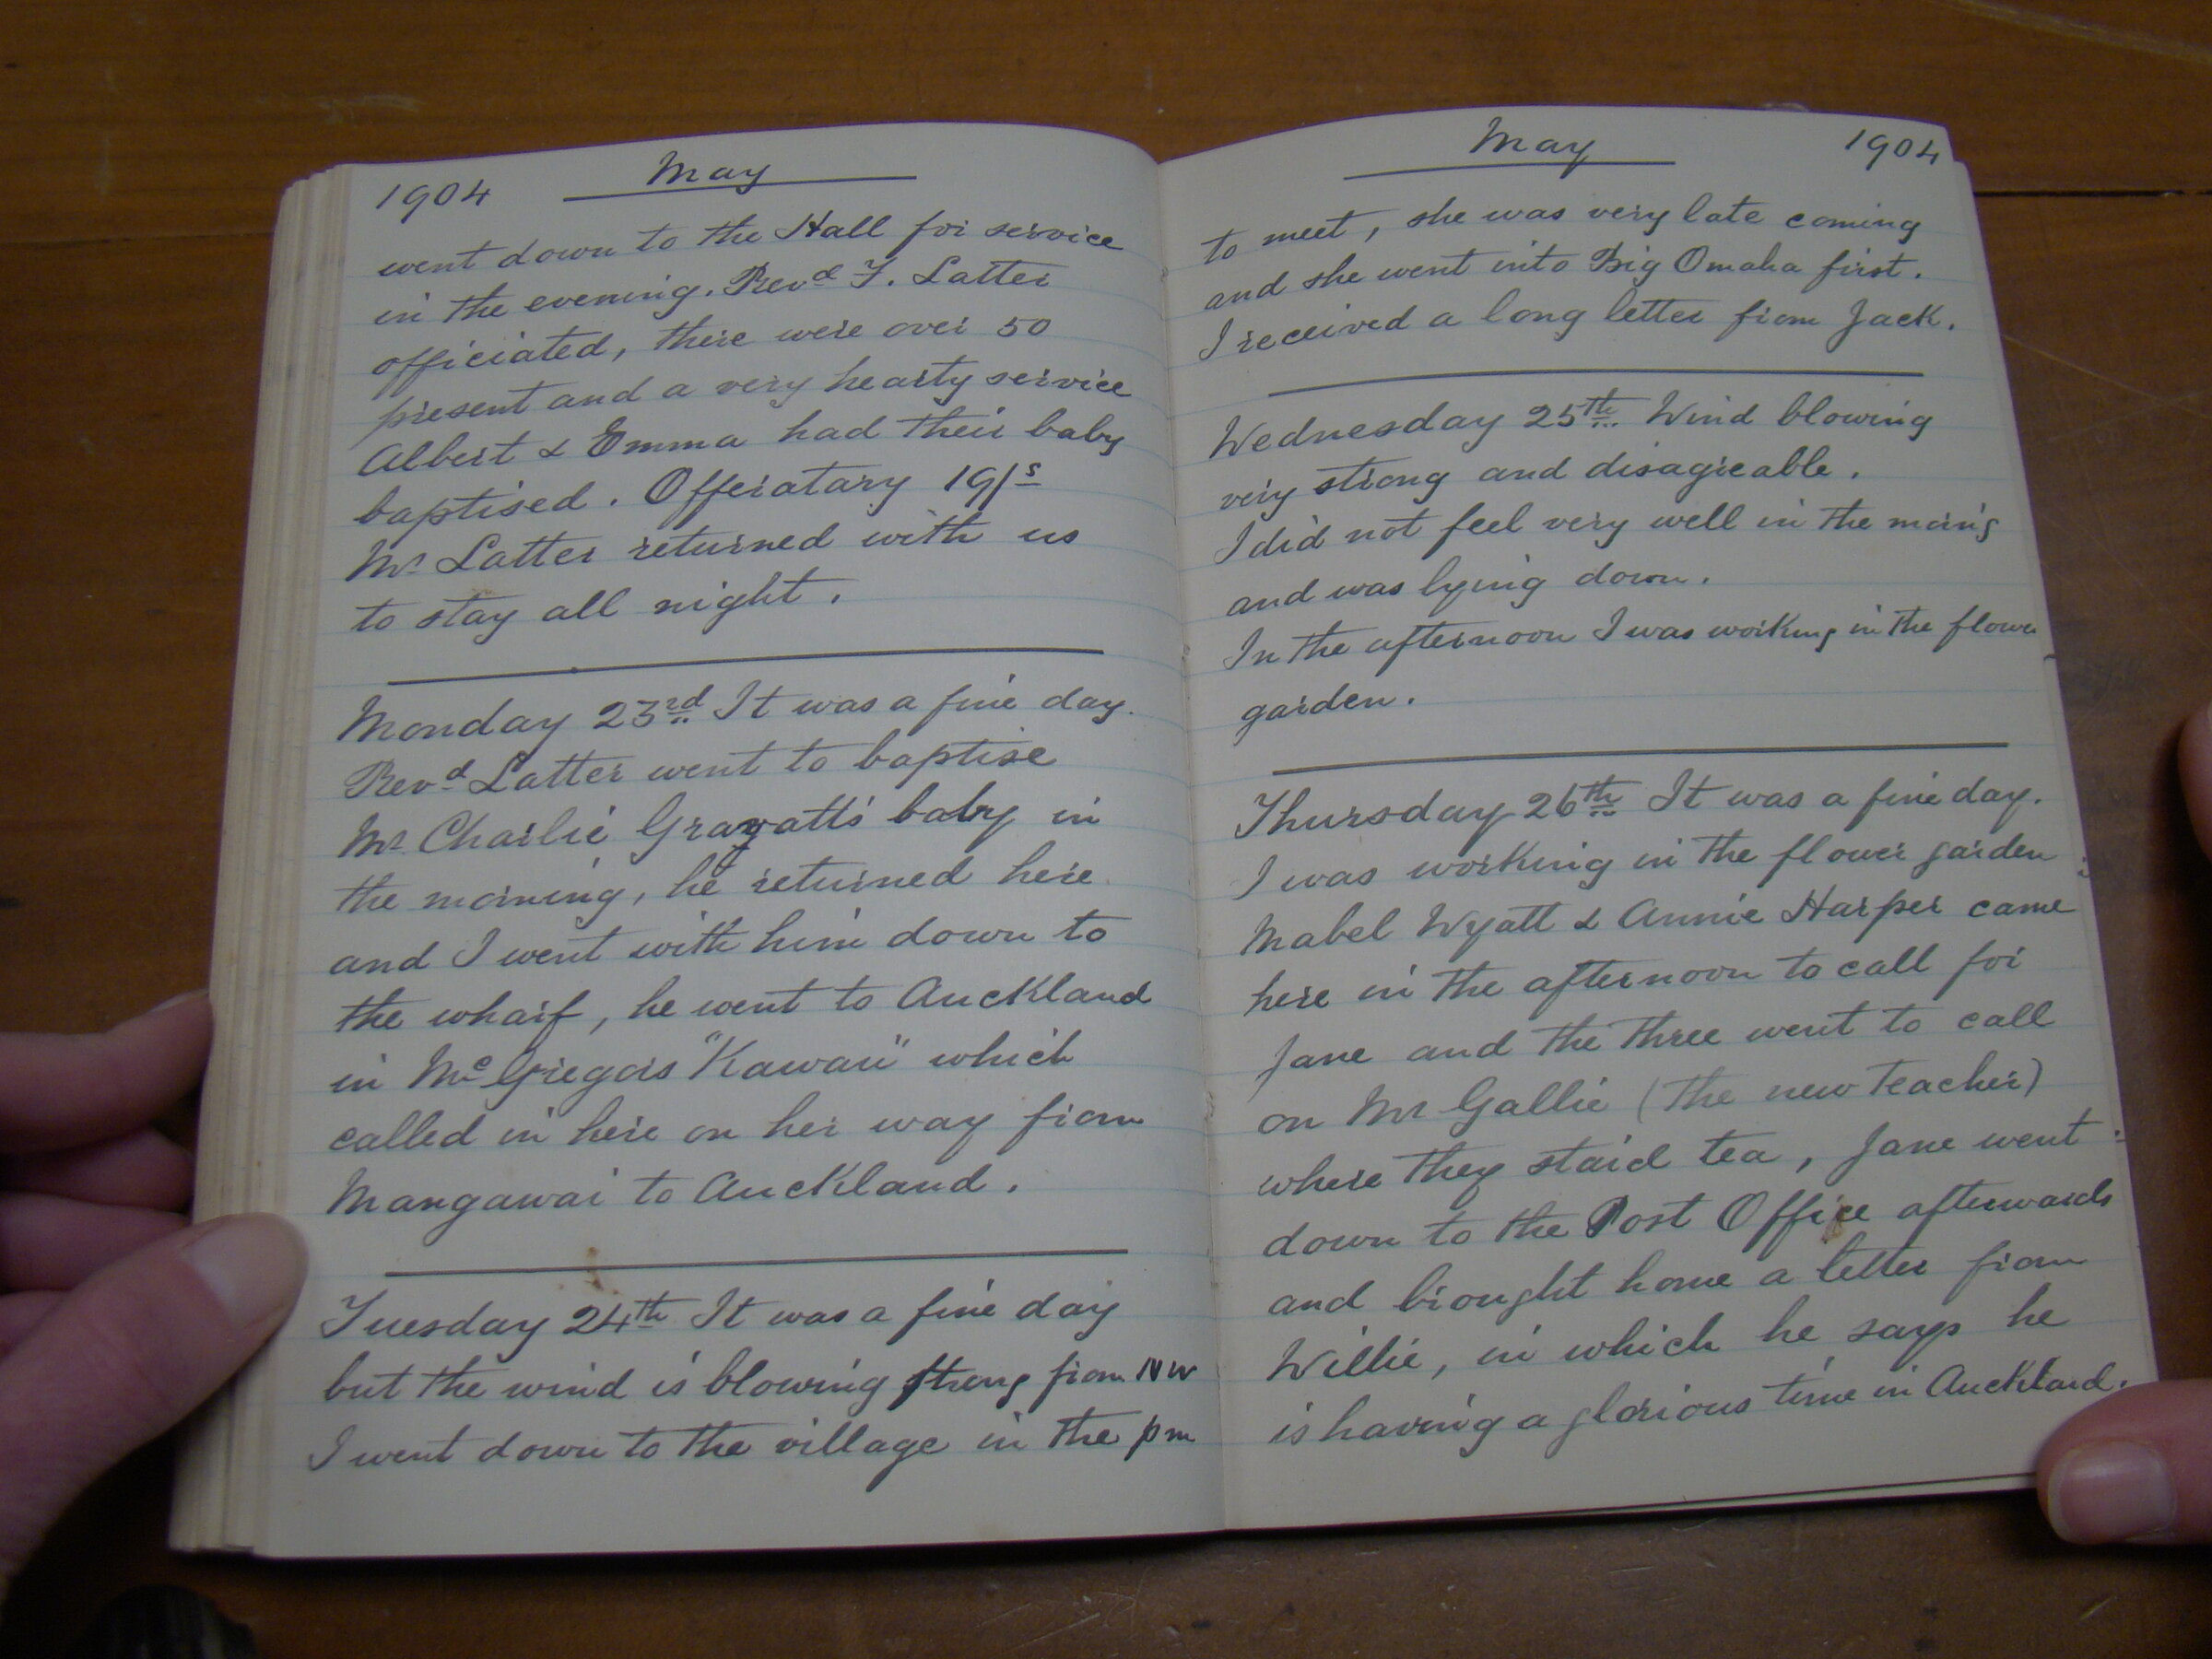 1904 May
went down to the Hall for service
in the evening. Revd F. Latter
officiated, there were over 50
present and a very hearty service
Albert & Emma had their baby
baptised. Offeratary 19/s
Mr Latter returned with us
to stay all night.
Monday 23rd It was a fine day.
Revd Latter went to baptise
Mr Charlie Gravatt's baby in
the morning, he returned here
and I went with him down to
the wharf, he went to Auckland
in McGregors "Kawau" which
called in here on her way from
Mangawai to Auckland.
Tuesday 24th It was a fine day
but the wind is blowing strong from NW
I went down to the village in the pm
May 1904
to meet, she was very late coming
and she went into Big Omaha first.
I received a long letter from Jack.
Wednesday 25th Wind blowing
very strong and disagreable.
I did not feel very well in the morn'g
and was lying down.
In the afternoon I was working in the flower
garden.
Thursday 26th It was a fine day.
I was working in the flower garden
Mabel Wyatt & Annie Harper came
here in the afternoon to call for
Jane and the three went to call
on Mr Gallie (the new teacher)
where they staid tea, Jane went
down to the Post Office afterwards
and brought home a letter from
Willie, in which he says he
is having a glorious time in Auckland.